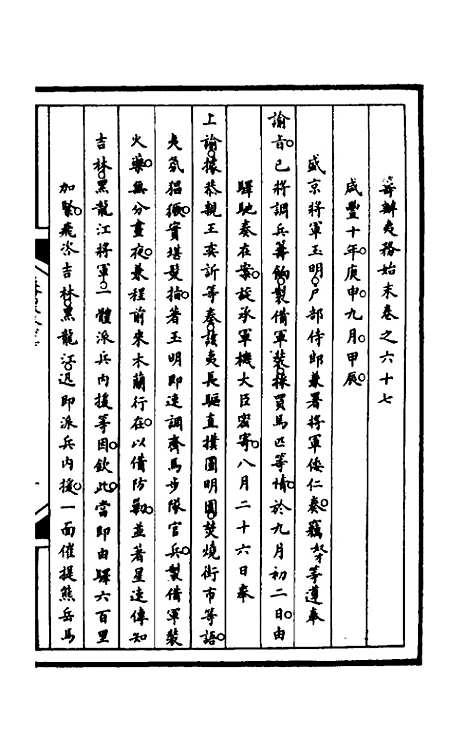 籌辦夷務始末卷之六十七
咸豐十年庚申九月甲辰
盛京將軍玉明戶部侍郎兼署將軍倭仁奏竊奴才等遵奉
諭旨已將調兵籌餉製備軍裝採買馬匹等情於九月初二日由
驛馳奏在案旋承軍機大臣密寄八月二十六日奉
上諭據恭親王奕訢等奏該夷長驅直撲圓明園焚燒街市等語
夷氛猖獗實堪髮指著玉明即速調齊馬步隊官兵製備軍裝
火藥無分晝夜兼程前來木蘭行在以備防勦並著星速傳知
吉林黑龍江將軍一體派兵內援等因欽此當即由驛六百里
加緊飛咨吉林黑龍江迅即派兵內援一面催提熊岳馬